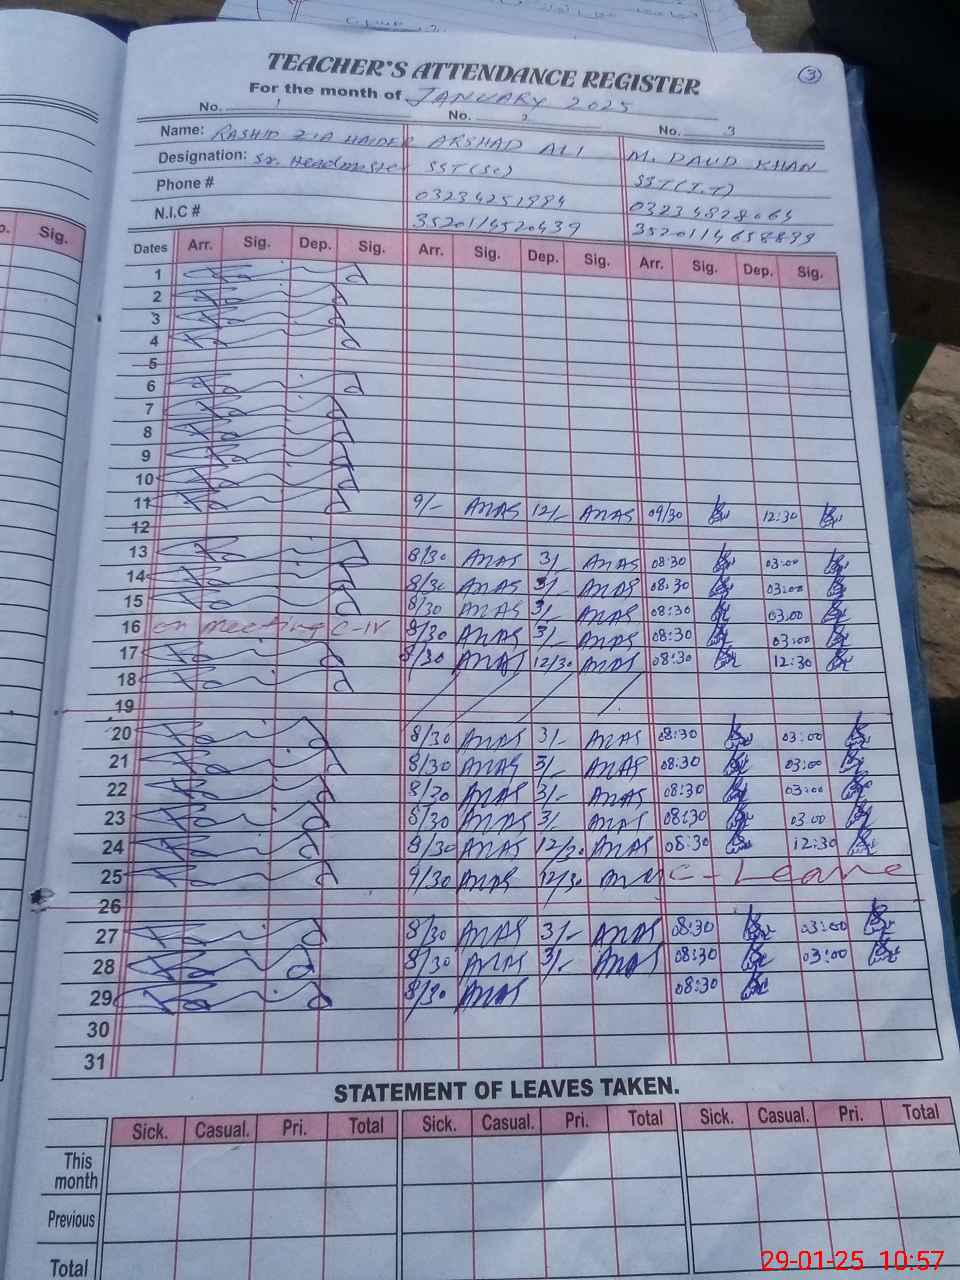 3
TEACHER'S ATTENDANCE REGISTER
For the month of JANUARY 2025
No. 1 No. 2 No. 3
Name: RASHID ZIA HAIDER ARSHAD ALI M. DAUD KHAN
Designation: Sr. Headmaster SST(Sc) SST(I.T)
Phone # 03234251984 03234828064
N.I.C # 3520114520439 3520114658839
Sig.
Dates Arr. Sig. Dep. Sig. Arr. Sig. Dep. Sig. Arr. Sig. Dep. Sig.
1
2
3
4
5
6
7
8
9
10
11 9/- ANAS 12/- ANAS 09/30 12:30
12
13 8/30 ANAS 3/- ANAS 08:30 03:00
14 8/30 ANAS 3/- ANAS 08:30 03:00
15 8/30 ANAS 3/- ANAS 08:30 03:00
16 on meeting C-IV 8/30 ANAS 3/- ANAS 08:30 03:00
17 8/30 ANAS 12/30 ANAS 08:30 12:30
18
19
20 8/30 ANAS 3/- ANAS 08:30 03:00
21 8/30 ANAS 3/- ANAS 08:30 03:00
22 8/30 ANAS 3/- ANAS 08:30 03:00
23 8/30 ANAS 3/- ANAS 08:30 03:00
24 8/30 ANAS 12/30 ANAS 08:30 12:30
25 9/30 ANAS 12/30 C-Leave
26
27 8/30 ANAS 3/- ANAS 08:30 03:00
28 8/30 ANAS 3/- ANAS 08:30 03:00
29 8/30 ANAS 08:30
30
31
STATEMENT OF LEAVES TAKEN.
Sick. Casual. Pri. Total Sick. Casual. Pri. Total Sick. Casual. Pri. Total
This
month
Previous
Total
29-01-25 10:57